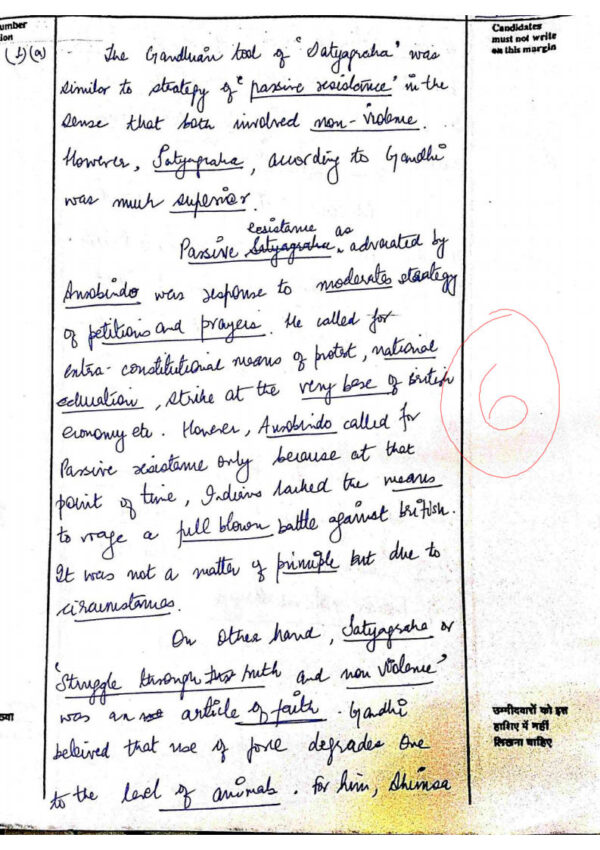 umber
ion
Candidates
must not write
on this margin
(b)(a)
The Gandhian tool of 'Satyagraha' was
similar to strategy of 'passive resistance' in the
sense that both involved non-violence.
However, Satyagraha, according to Gandhi
was much superior.
resistance as
Passive Satyagraha advocated by
Aurobindo was response to moderates strategy
of petitions and prayers. He called for
extra-constitutional means of protest, national
education, strike at the very base of British
economy etc. However, Aurobindo called for
Passive resistance only because at that
point of time, Indians lacked the means
to wage a full blown battle against British.
It was not a matter of principle but due to
circumstances.
6
On other hand, Satyagraha or
'Struggle through truth and non violence'
was an article of faith. Gandhi
beleived that use of force degrades one
to the level of animals. For him, Ahimsa
ख्या
उम्मीदवारों को इस
हाशिए में नहीं
लिखना चाहिए